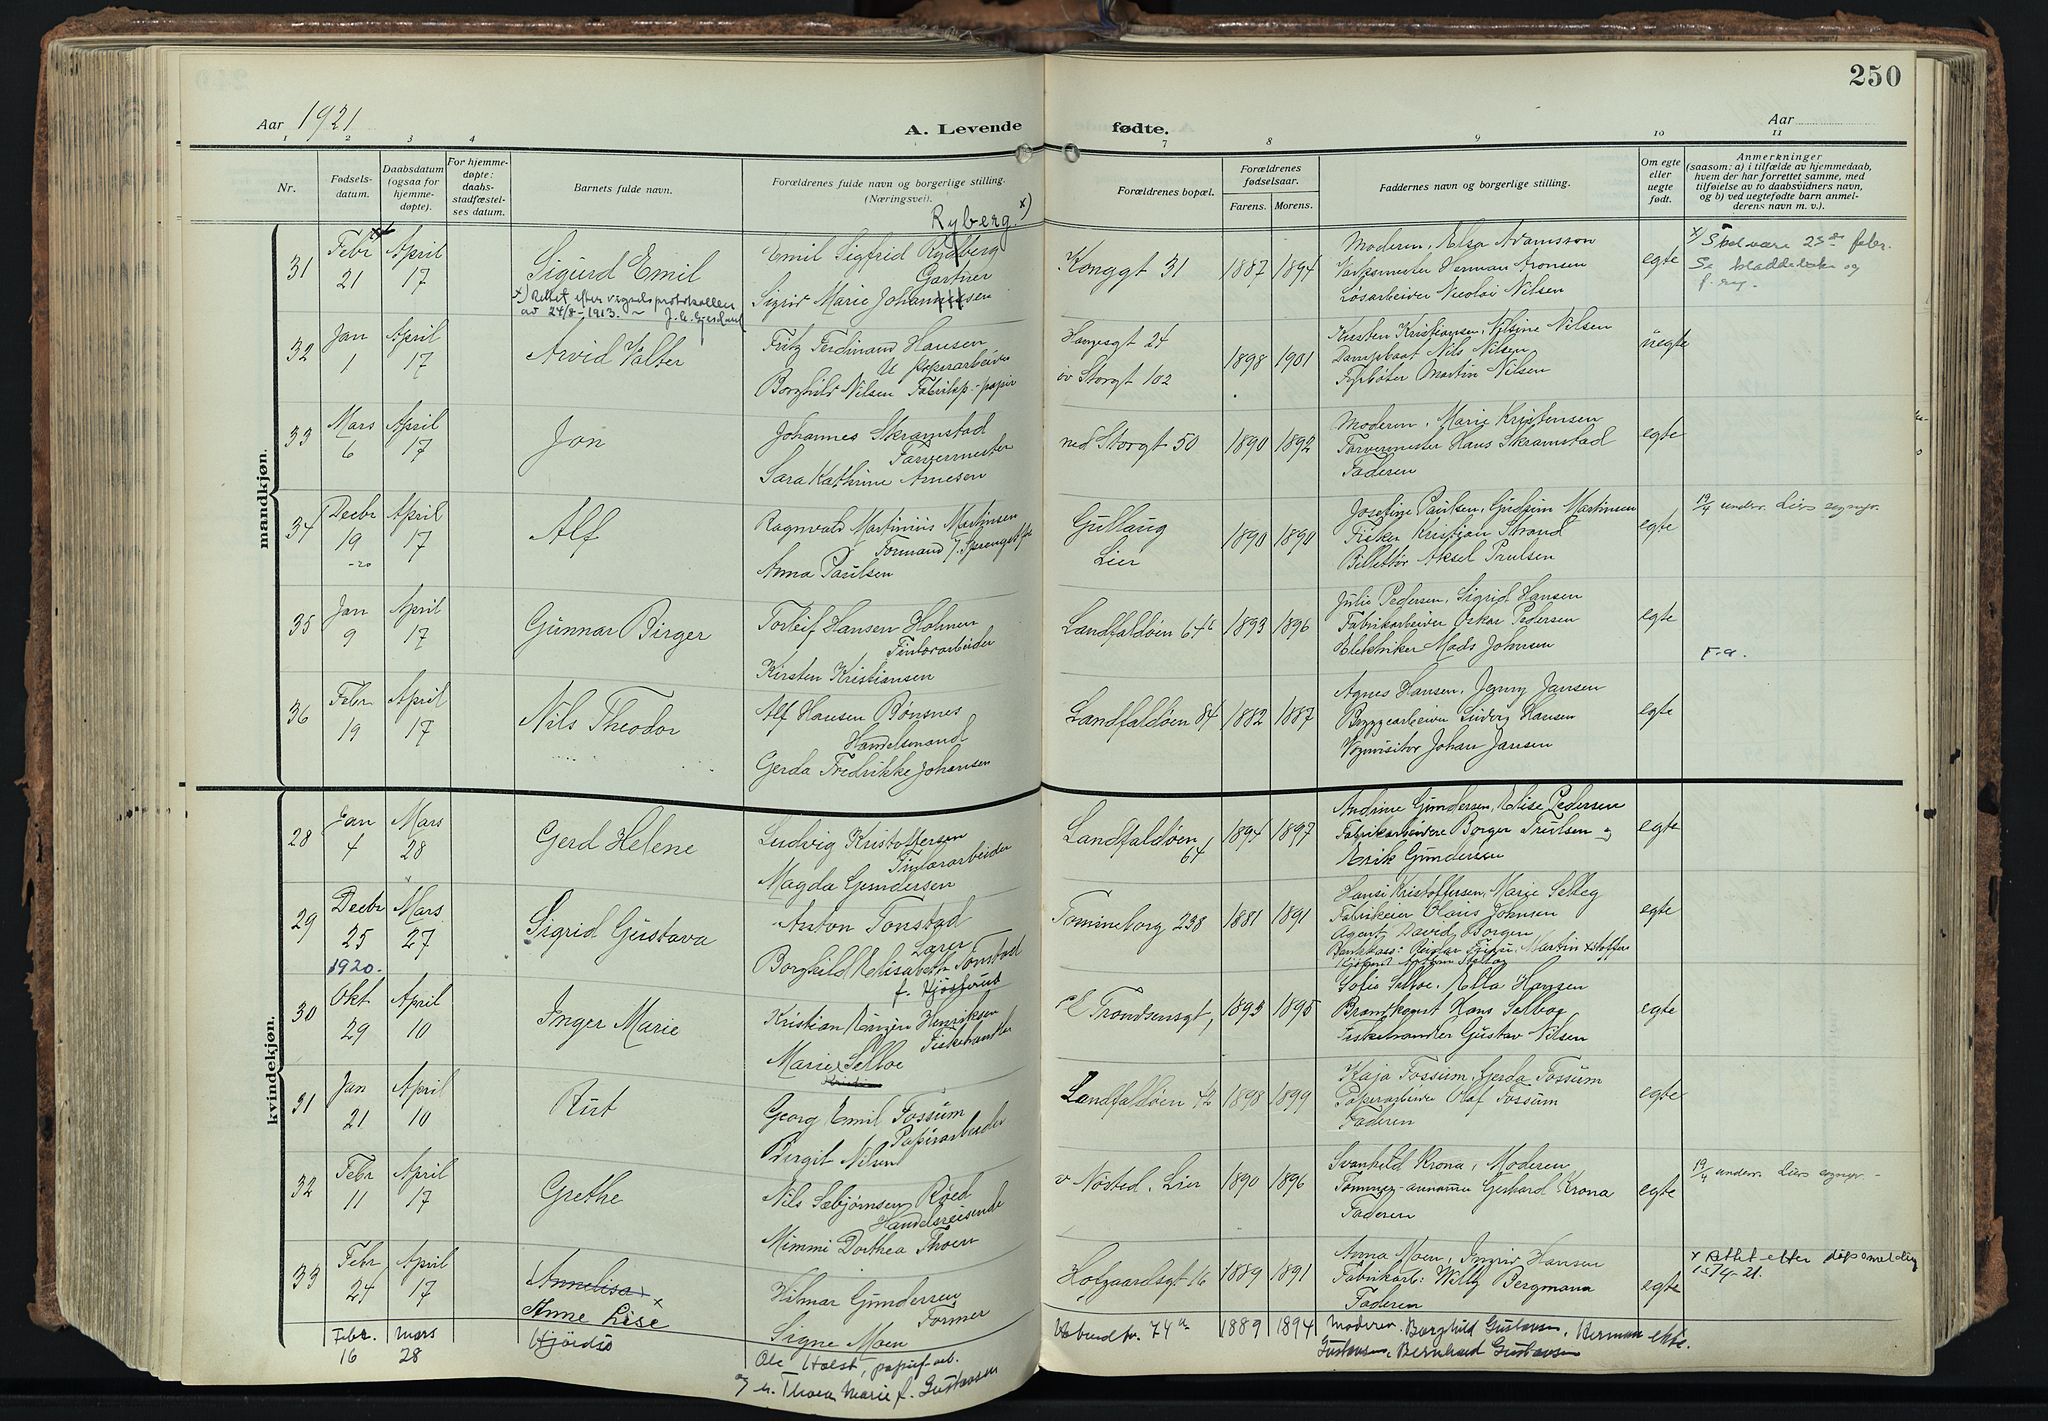 250
Aar 1921
A. Levende fødte.
Aar
1 2 3 4 7 8 9 10 11
Nr.
Fødsels-
datum.
Daabsdatum
(ogsaa for
hjemme-
døpte).
For hjemme-
døpte:
daabs-
stadfæstel-
ses datum.
Barnets fulde navn.
Forældrenes fulde navn og borgerlige stilling.
(Næringsvei).
Forældrenes bopæl.
Forældrenes
fødselsaar.
Farens. Morens.
Faddernes navn og borgerlige stilling.
Om egte
eller
uegte
født.
Anmerkninger
(saasom: a) i tilfælde av hjemmedaab,
hvem der har forrettet samme, med
tilføielse av to daabsvidners navn,
og b) ved uegtefødte barn anmel-
derens navn m. v.).
mandkjøn.
31
Febr x
21
April
17
Sigurd Emil
x) Rettet efter vigselsprotokollen
av 24/8-1913.
Ryberg x)
Emil Sigfrid Rydberg
Gartner
Sigrid Marie Johannessen
Konggt 31
1887 1894
Moderen, Elsa Adamsson
Herman Aronsen
Løsarbeider Nicolai Nilsen
egte
x) Skal være 25de febr.
Se
32
Jan
1
April
17
Arvid Valter
Fritz Ferdinand Hansen
U papirarbeider
Borghild Nilsen
Havnegt 24
øv Storgt 102
1898 1901
Kristiansen, Nilsine Nilsen
Nils Nilsen
Fyrbøter Martin Nilsen
uegte
33
Mars
6
April
17
Jon
Johannes Skramstad
Sara Kathrine Arnesen
ned Storgt 50
1890 1892
Moderen, Marie Kristensen
Farvermester Hans Skramstad
Faderen
egte
34
Decbr
19
-20
April
17
Alf
Ragnvald Martinius Martinsen
Formand
Anna Paulsen
Gullaug
Lier
1890 1890
Josefine Paulsen, Gudrun Martinsen
Fisker Kristian Strand
Billettør Aksel Paulsen
egte
19/4 underr. Liers sognepr.
35
Jan
9
April
17
Gunnar Birger
Torleif Hansen Holmen
Kirsten Kristiansen
Landfaldøen 64
1893 1896
Julie Pedersen, Sigrid Hansen
Fabrikarbeider Oskar Pedersen
Elektriker Mads Johnsen
egte
F.a.
36
Febr
19
April
17
Nils Theodor
Alf Hansen Bønsnes
Handelsmand
Gerda Fredrikke Johansen
Landfaldøen 84
1882 1887
Agnes Hansen, Jenny Jansen
Bryggearbeider Ludvig Hansen
Vognvisitør Johan Jansen
egte
kvindekjøn.
28
Jan
4
Mars
28
Gerd Helene
Ludvig Kristoffersen
Magda Gundersen
Landfaldøen
64
1894 1897
Andrine Gundersen, Elise Pedersen
Fabrikarbeidere Borger Trulsen og
Erik Gundersen
egte
29
Decbr
25
1920.
Mars
27
Sigrid Gustava
Anton Tonstad
Lærer
Borghild Elisabeth Tonstad
Tomineborg 238
1881 1891
Hansi Kristoffersen, Marie Selteg
Fabrikeier Olaus Johnsen
Agent David Borgen
egte
30
Okt
29
April
10
Inger Marie
Kristian Henriksen
Fiskehandler
Marie Selboe
E Trondsensgt,
1893 1895
Sofie Selboe, Ella Hansen
Hans Selboe
Fiskehandler Gustav Nilsen
egte
31
Jan
21
April
10
Rut
Georg Emil Fossum
Papirarbeider
Birgit Nilsen
Landfaldøen 42
1898 1899
Kaja Fossum, Gerda Fossum
Papirarbeider Olaf Fossum
Faderen
egte
32
Febr
11
April
17
Grethe
Nils Sæbjørnsen Røed
Handelsreisende
Mimmi Dorthea Thoen
v Nøsted, Lier
1890 1896
Svanhild Krona, Moderen
Gerhard Krona
Faderen
egte
19/4 underr. Liers sognepr.
33
Febr
24
April
17
Annelisa x
Anne Lise x
Hilmar Gundersen
Former
Signe Moen
Holgaardsgt 16
1889 1891
Anna Moen, Ingrid Hansen
Fabrikarb: Willy Bergmann
Faderen
egte
x Rettet efter dåpsmelding
15/4-21.
Febr.
16
mars
28
Hjørdis
Ole Holst, papirarb.
og h. Thora Marie f. Gustavsen
74a
1889 1894
Moderen, Borghild Gustavsen, Herman
Gustavsen, Bernhard Gustavsen
ekte.